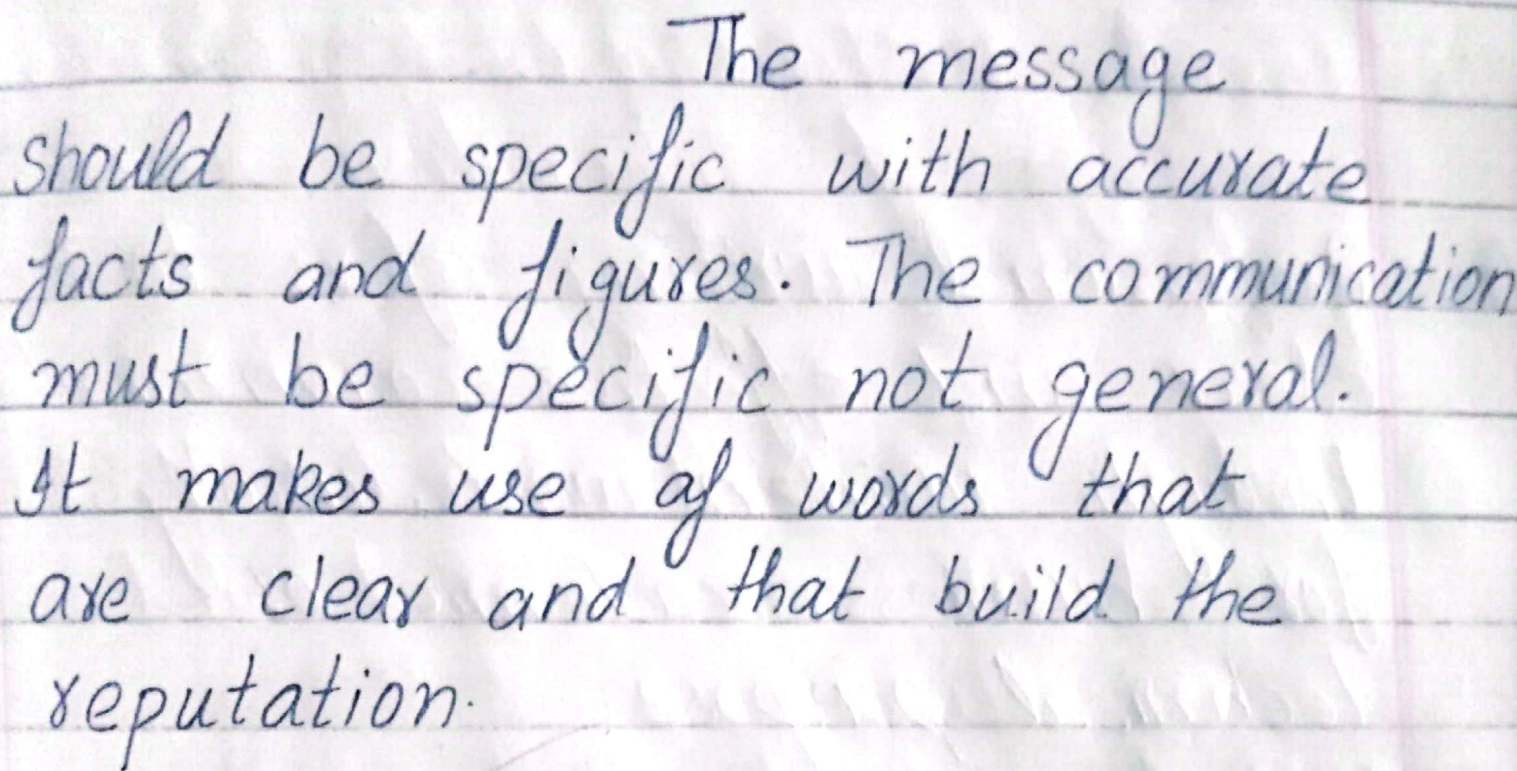 The message
should be specific with accurate
facts and figures. The communication
must be specific not general.
It makes use of words that
are clear and that build the
reputation.